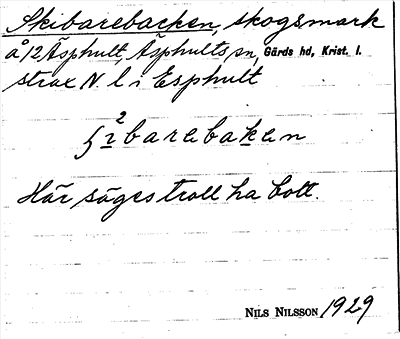 Skibarebacken, skogsmark
å 12 Äsphult, Äsphults sn, Gärds hd, Krist. l.
strax N. l i Esphult
2barabakan
Här säges troll ha bott.
NILS NILSSON 1929